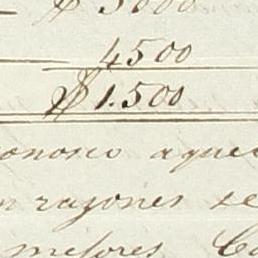 $ 3000
4500
$ 1.500
onosco aque
n razones se
mejores